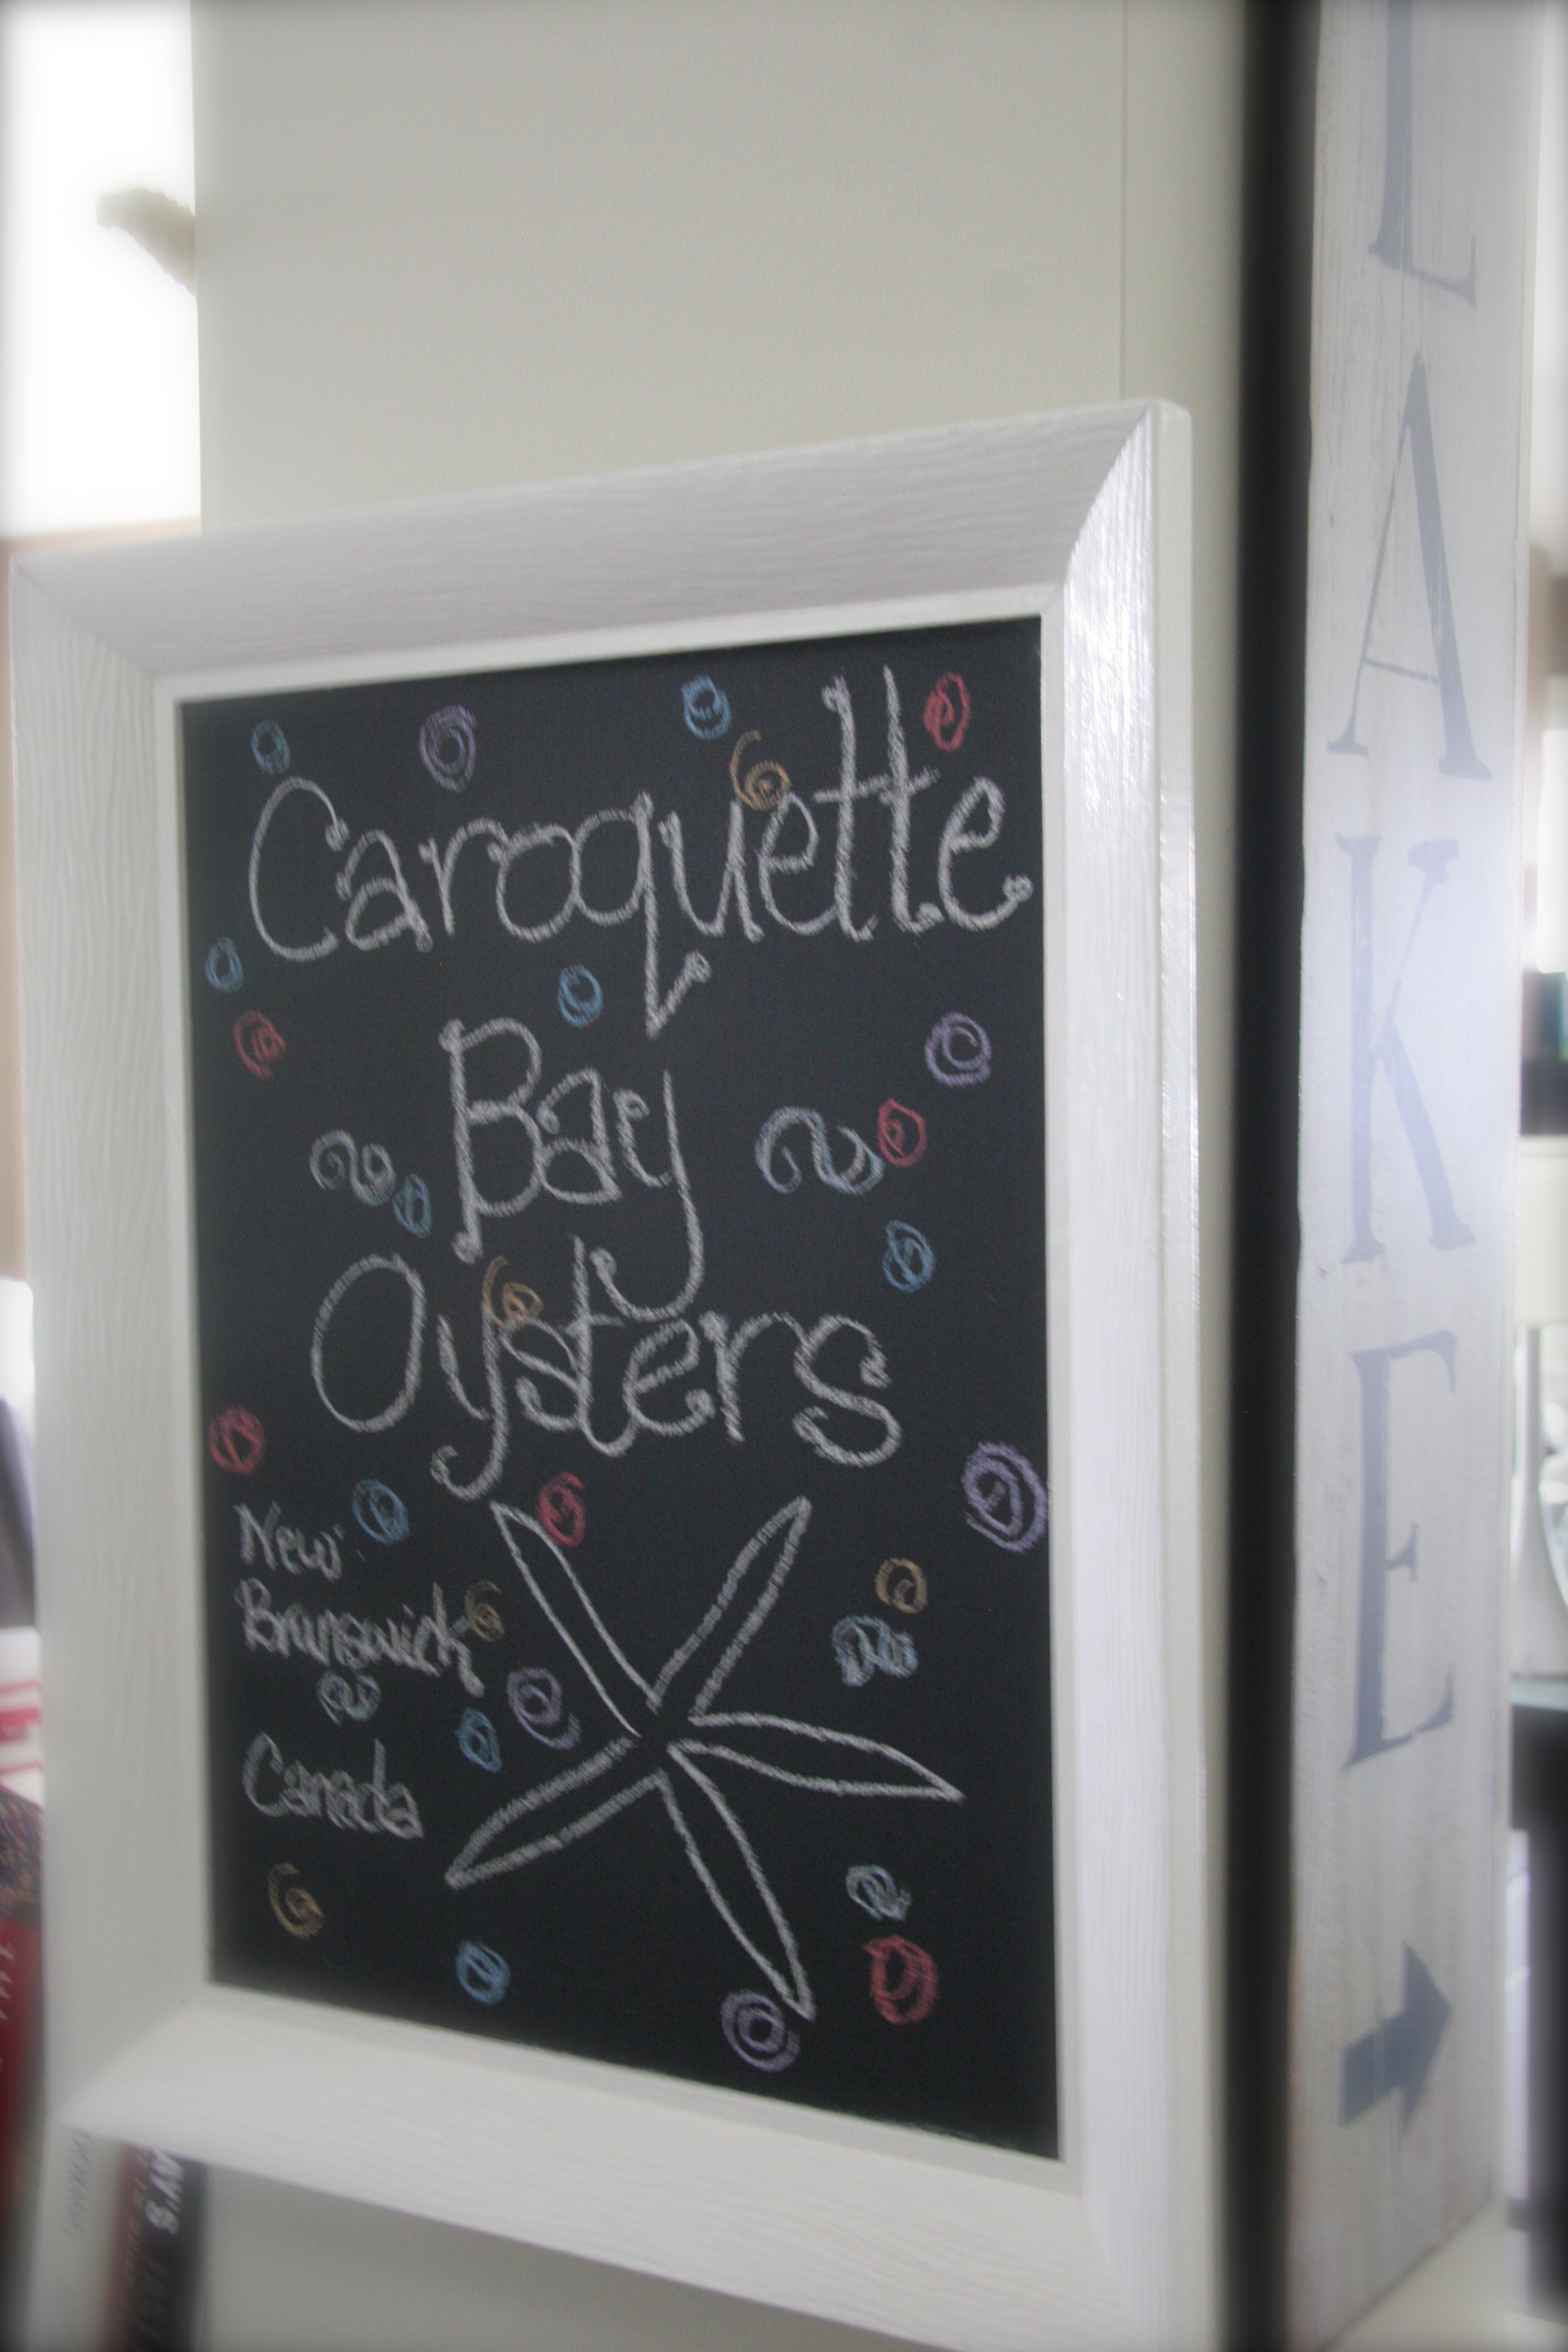 Caroquette
Bay
Oysters
New
Brunswick
Canada
LAKE